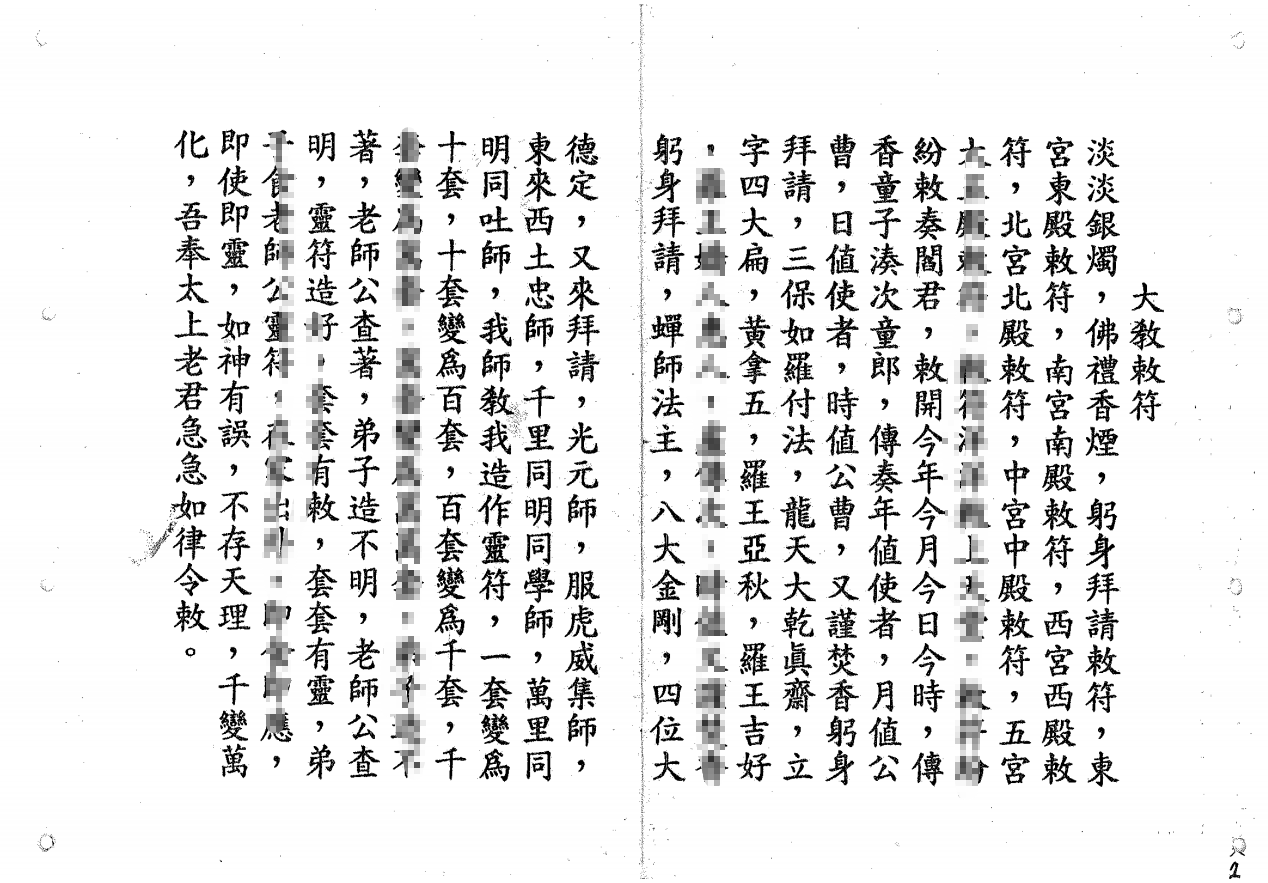 大教敕符
淡淡銀燭，佛禮香煙，躬身拜請敕符，東
宮東殿敕符，南宮南殿敕符，西宮西殿敕
符，北宮北殿敕符，中宮中殿敕符，五宮
紛敕奏閻君，敕開今年今月今日今時，傳
香童子湊次童郎，傳奏年值使者，月值公
曹，日值使者，時值公曹，又謹焚香躬身
拜請，三保如羅付法，龍天大乾眞齋，立
字四大扁，黃拿五，羅王亞秋，羅王吉好
躬身拜請，蟬師法主，八大金剛，四位大
德定，又來拜請，光元師，服虎威集師，
東來西土忠師，千里同明同學師，萬里同
明同吐師，我師教我造作靈符，一套變爲
十套，十套變爲百套，百套變爲千套，千
著，老師公查著，弟子造不明，老師公查
明，靈符造好，套套有敕，套套有靈，弟
子食老師公靈符，應，
即使即靈，如神有誤，不存天理，千變萬
化，吾奉太上老君急急如律令敕。
2